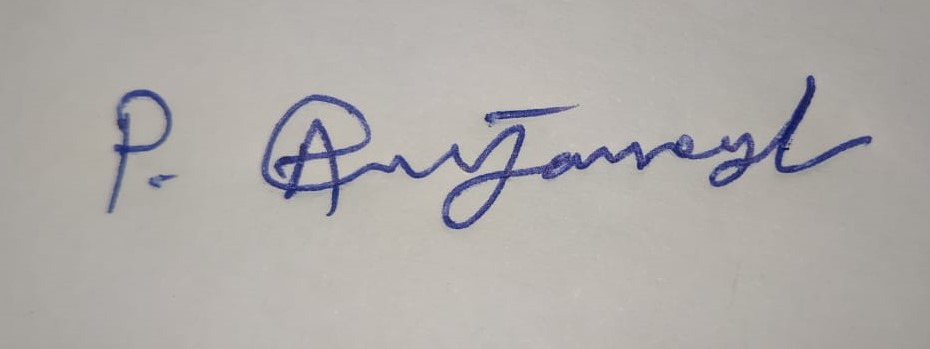 P. Anjaneyl